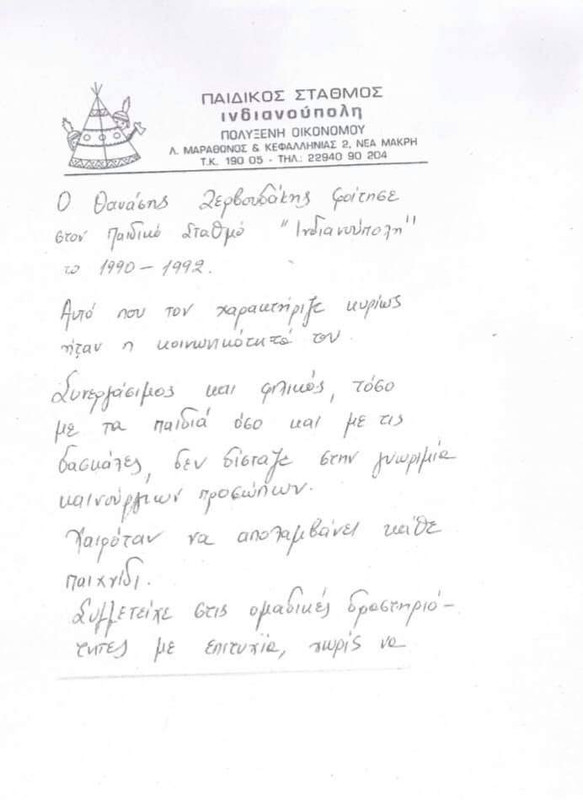 ΠΑΙΔΙΚΟΣ ΣΤΑΘΜΟΣ
ινδιανούπολη
ΠΟΛΥΞΕΝΗ ΟΙΚΟΝΟΜΟΥ
Λ. ΜΑΡΑΘΩΝΟΣ & ΚΕΦΑΛΛΗΝΙΑΣ 2, ΝΕΑ ΜΑΚΡΗ
Τ.Κ. 190 05 - ΤΗΛ.: 22940 90 204
Ο Θανάσης Ζερβουδάκης φοίτησε
στον Παιδικό Σταθμό "Ινδιανούπολη"
το 1990-1992.
Αυτό που τον χαρακτήριζε κυρίως
ήταν η κοινωνικότητά του.
Συνεργάσιμος και φιλικός, τόσο
με τα παιδιά όσο και με τις
δασκάλες, δεν δίσταζε στην γνωριμία
καινούργιων προσώπων.
Χαιρόταν να απολαμβάνει κάθε
παιχνίδι.
Συμμετείχε στις ομαδικές δραστηριό-
τητες με επιτυχία, χωρίς να